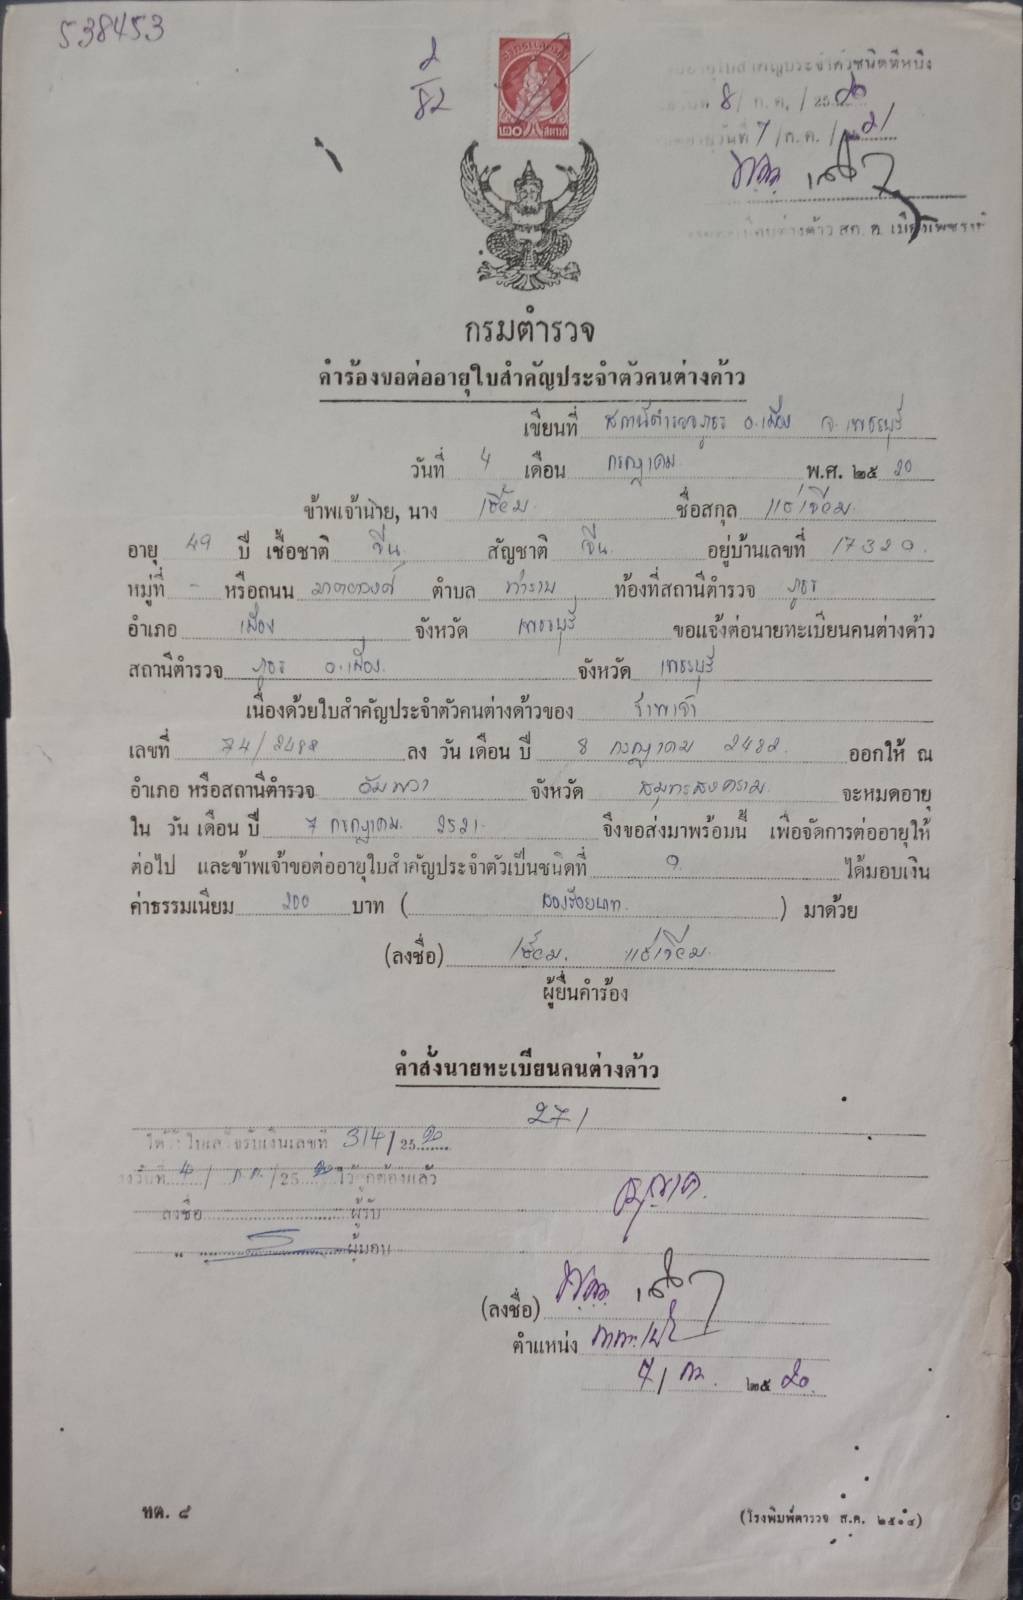 538453
2
82
๒๐ สตางค์
8 / ก.ค. / 25 20
7 / ก.ค. / 21
คนต่างด้าว สภ. อ. เมืองเพชรบุรี
กรมตำรวจ
คำร้องขอต่ออายุใบสำคัญประจำตัวคนต่างด้าว
เขียนที่ สถานีตำรวจภูธร อ.เมือง จ.เพชรบุรี
วันที่ 4 เดือน กรกฎาคม พ.ศ. ๒๕ 20
ข้าพเจ้านาย, นาง ชื่อสกุล แซ่เจียม
อายุ 49 ปี เชื้อชาติ จีน สัญชาติ จีน อยู่บ้านเลขที่
หมู่ที่ - หรือถนน ตำบล ท่าราบ ท้องที่สถานีตำรวจ ภูธร
อำเภอ เมือง จังหวัด เพชรบุรี ขอแจ้งต่อนายทะเบียนคนต่างด้าว
สถานีตำรวจ ภูธร อ.เมือง จังหวัด เพชรบุรี
เนื่องด้วยใบสำคัญประจำตัวคนต่างด้าวของ ข้าพเจ้า
เลขที่ 74/2482 ลง วัน เดือน ปี 8 กรกฎาคม 2482 ออกให้ ณ
อำเภอ หรือสถานีตำรวจ อัมพวา จังหวัด สมุทรสงคราม จะหมดอายุ
ใน วัน เดือน ปี 7 กรกฎาคม 2521 จึงขอส่งมาพร้อมนี้ เพื่อจัดการต่ออายุให้
ต่อไป และข้าพเจ้าขอต่ออายุใบสำคัญประจำตัวเป็นชนิดที่ ๑ ได้มอบเงิน
ค่าธรรมเนียม 200 บาท ( สองร้อยบาท ) มาด้วย
(ลงชื่อ) แซ่เจียม
ผู้ยื่นคำร้อง
คำสั่งนายทะเบียนคนต่างด้าว
271
ใบเสร็จรับเงินเลขที่ 314/25 20
ลงวันที่ 4 / ก.ค. /25 20 ไว้ถูกต้องแล้ว
ลงชื่อ ผู้รับ
" ผู้มอบ
อนุญาต
(ลงชื่อ)
ตำแหน่ง
7 / กค. ๒๕ 20
ทต. ๘
(โรงพิมพ์ตำรวจ ส.ค. ๒๕๑๔)